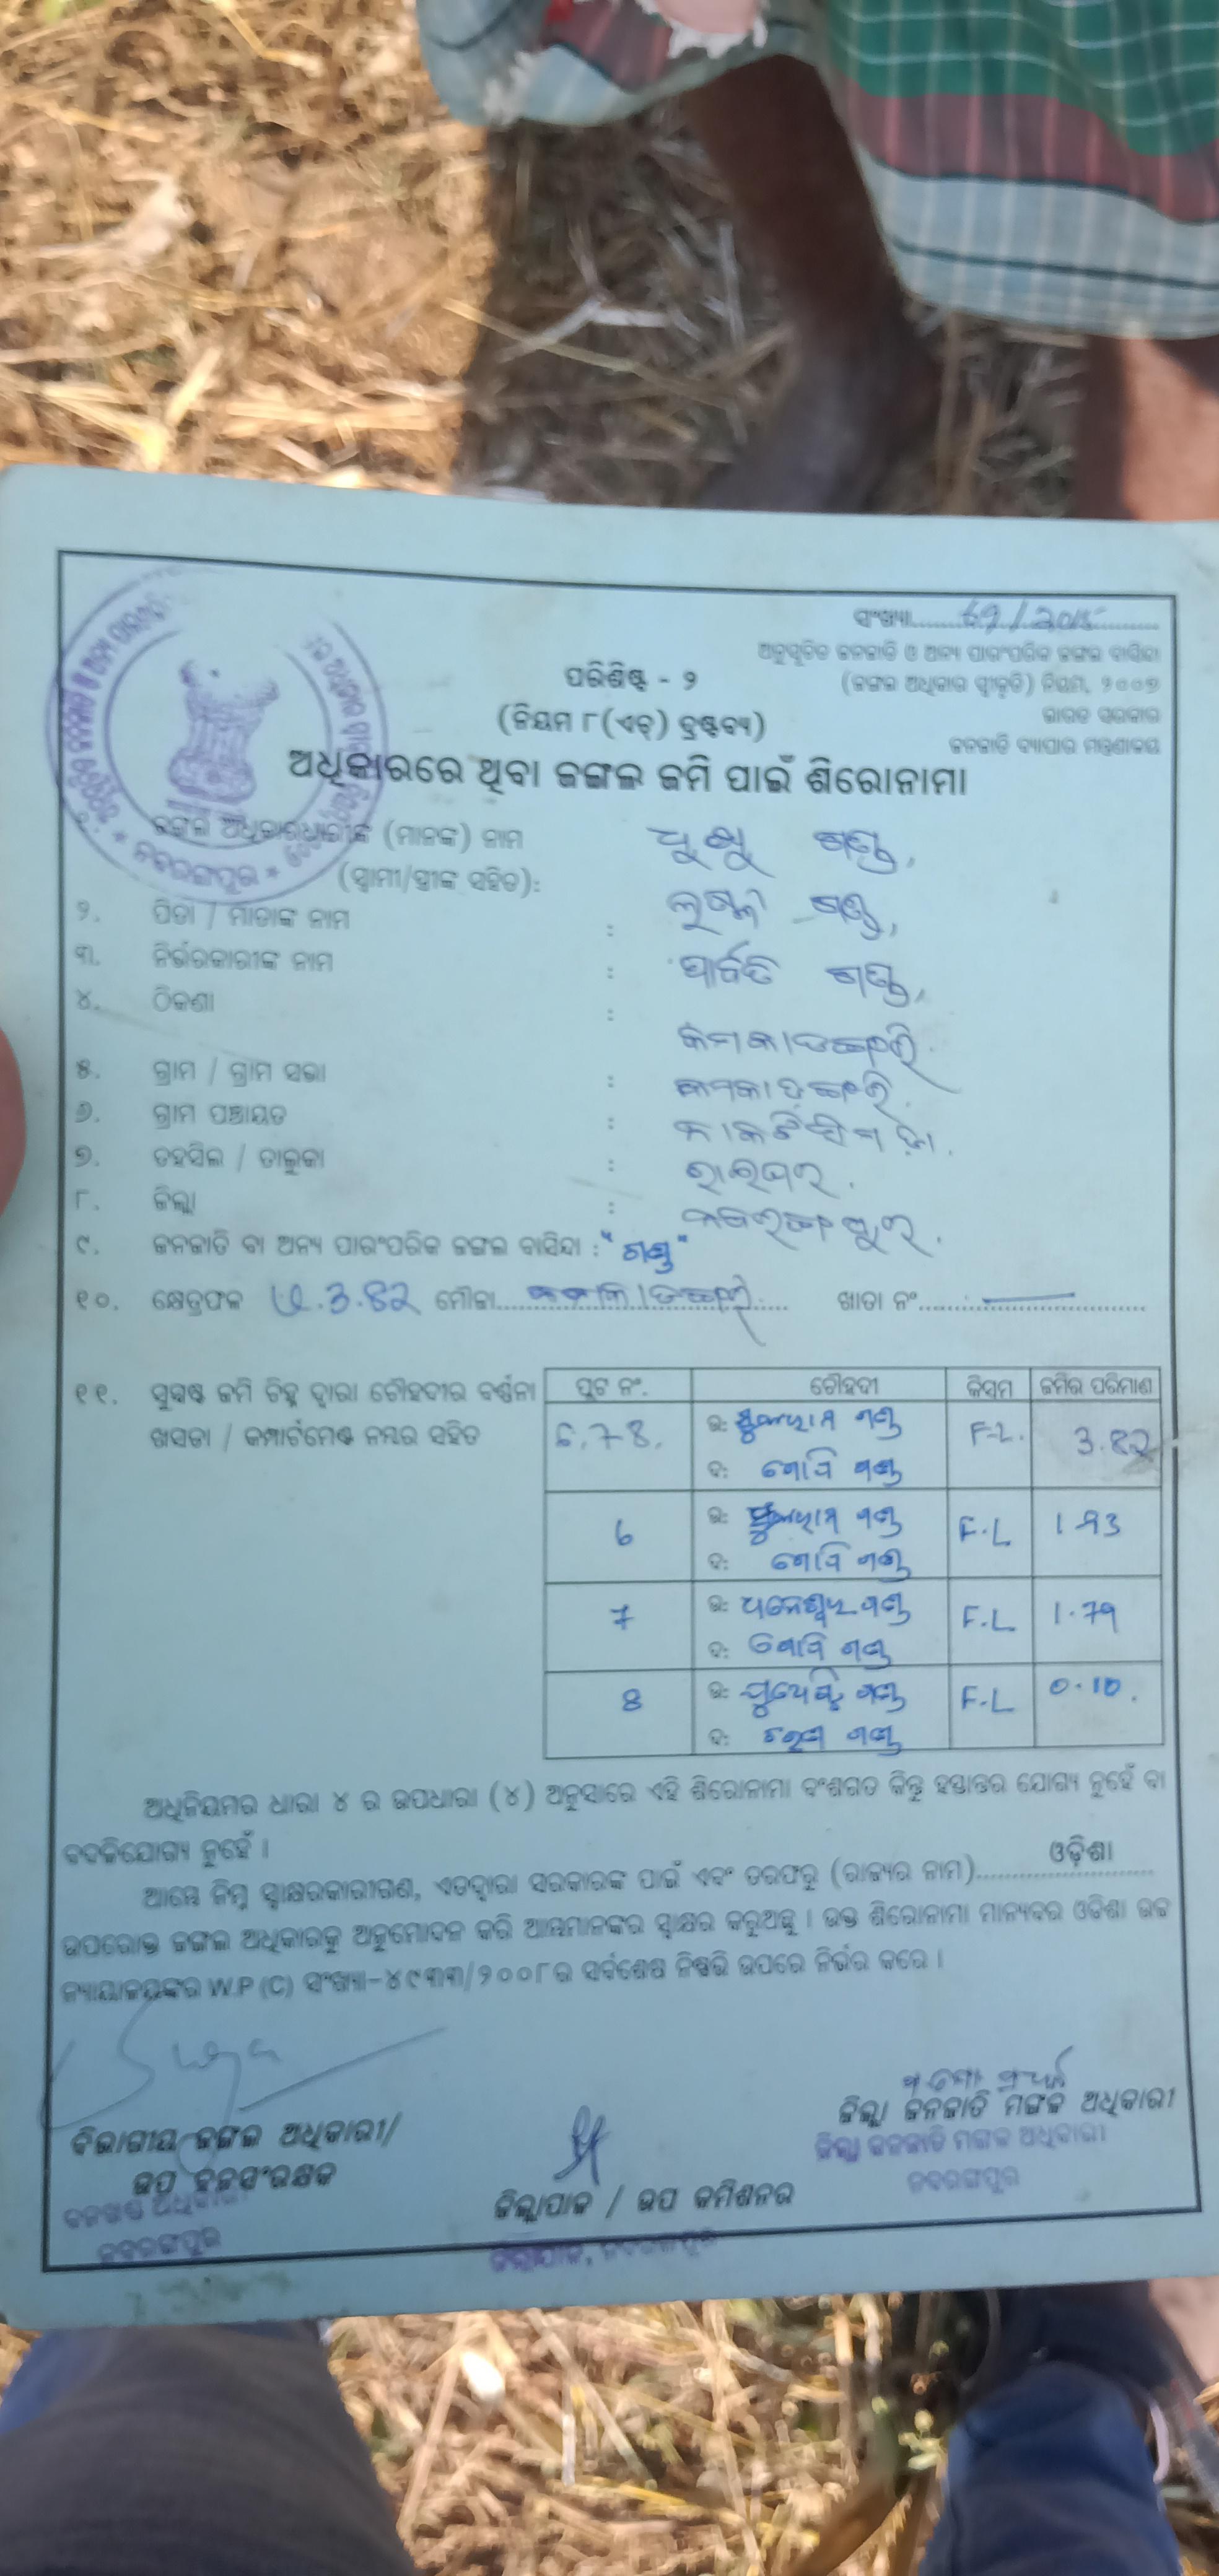 ସଂଖ୍ୟା.......69/2015.......
ଅନୁସୂଚିତ ଜନଜାତି ଓ ଅନ୍ୟ ପାରଂପରିକ ଜଙ୍ଗଲ ବାସିନ୍ଦା
ପରିଶିଷ୍ଟ - ୨
(ଜଙ୍ଗଲ ଅଧିକାର ସ୍ୱୀକୃତି) ନିୟମ, ୨୦୦୭
(ନିୟମ ୮(ଏଚ୍) ଦ୍ରଷ୍ଟବ୍ୟ)
ଭାରତ ସରକାର
ଜନଜାତି ବ୍ୟାପାର ମନ୍ତ୍ରଣାଳୟ
ଅଧିକାରରେ ଥିବା ଜଙ୍ଗଲ ଜମି ପାଇଁ ଶିରୋନାମା
ଜଙ୍ଗଲ ଅଧିକାରଧାରୀଙ୍କ (ମାନଙ୍କ) ନାମ ଗଣ୍ଡ,
(ସ୍ୱାମୀ/ସ୍ତ୍ରୀଙ୍କ ସହିତ):
୨. ପିତା / ମାତାଙ୍କ ନାମ : ଗଣ୍ଡ,
୩. ନିର୍ଭରକାରୀଙ୍କ ନାମ : ପାର୍ବତି ଗଣ୍ଡ,
୪. ଠିକଣା :
୫. ଗ୍ରାମ / ଗ୍ରାମ ସଭା :
୬. ଗ୍ରାମ ପଞ୍ଚାୟତ :
୭. ତହସିଲ / ତାଲୁକା : ରାଇଘର.
୮. ଜିଲ୍ଲା : ନବରଙ୍ଗପୁର.
୯. ଜନଜାତି ବା ଅନ୍ୟ ପାରଂପରିକ ଜଙ୍ଗଲ ବାସିନ୍ଦା : "ଗଣ୍ଡ"
୧୦. କ୍ଷେତ୍ରଫଳ 3.82 ମୌଜା ଖାତା ନଂ
୧୧. ସୁସ୍ପଷ୍ଟ ଜମି ଚିହ୍ନ ଦ୍ୱାରା ଚୌହଦୀର ବର୍ଣ୍ଣନା
ଖସଡା / କମ୍ପାର୍ଟମେଣ୍ଟ ନମ୍ବର ସହିତ
ପ୍ଲଟ ନଂ. ଚୌହଦୀ କିସମ ଜମିର ପରିମାଣ
6.78. ଉ: ଗଣ୍ଡ F.L. 3.82
ଦ: ଗୋପି ଗଣ୍ଡ
6 ଉ: ଗଣ୍ଡ F.L 1.93
ଦ: ଗୋପି ଗଣ୍ଡ
7 ଉ: ଧନେଶ୍ୱର ଗଣ୍ଡ F.L 1.79
ଦ: ଗୋପି ଗଣ୍ଡ
8 ଉ: ଗଣ୍ଡ F.L 0.10.
ଦ: ଗଣ୍ଡ
ଅଧିନିୟମର ଧାରା ୪ ର ଉପଧାରା (୪) ଅନୁସାରେ ଏହି ଶିରୋନାମା ବଂଶଗତ କିନ୍ତୁ ହସ୍ତାନ୍ତର ଯୋଗ୍ୟ ନୁହେଁ ବା
ବଦଳିଯୋଗ୍ୟ ନୁହେଁ ।
ଆମ୍ଭେ ନିମ୍ନ ସ୍ୱାକ୍ଷରକାରୀଗଣ, ଏତଦ୍ୱାରା ସରକାରଙ୍କ ପାଇଁ ଏବଂ ତରଫରୁ (ରାଜ୍ୟର ନାମ)......ଓଡ଼ିଶା......
ଉପରୋକ୍ତ ଜଙ୍ଗଲ ଅଧିକାରକୁ ଅନୁମୋଦନ କରି ଆମ୍ଭମାନଙ୍କର ସ୍ୱାକ୍ଷର କରୁଅଛୁ । ଉକ୍ତ ଶିରୋନାମା ମାନ୍ୟବର ଓଡିଶା ଉଚ୍ଚ
ନ୍ୟାୟାଳୟଙ୍କର W.P (C) ସଂଖ୍ୟା-୪୯୩୩/୨୦୦୮ର ସର୍ବଶେଷ ନିଷ୍ପତ୍ତି ଉପରେ ନିର୍ଭର କରେ ।
ବିଭାଗୀୟ ଜଙ୍ଗଲ ଅଧିକାରୀ/
ଉପ ବନସଂରକ୍ଷକ
ବନଖଣ୍ଡ ଅଧିକାରୀ
ନବରଙ୍ଗପୁର
ଜିଲ୍ଲାପାଳ / ଉପ କମିଶନର
ଜିଲ୍ଲାପାଳ, ନବରଙ୍ଗପୁର
ଜିଲ୍ଲା ଜନଜାତି ମଙ୍ଗଳ ଅଧିକାରୀ
ଜିଲ୍ଲା ଜନଜାତି ମଙ୍ଗଳ ଅଧିକାରୀ
ନବରଙ୍ଗପୁର